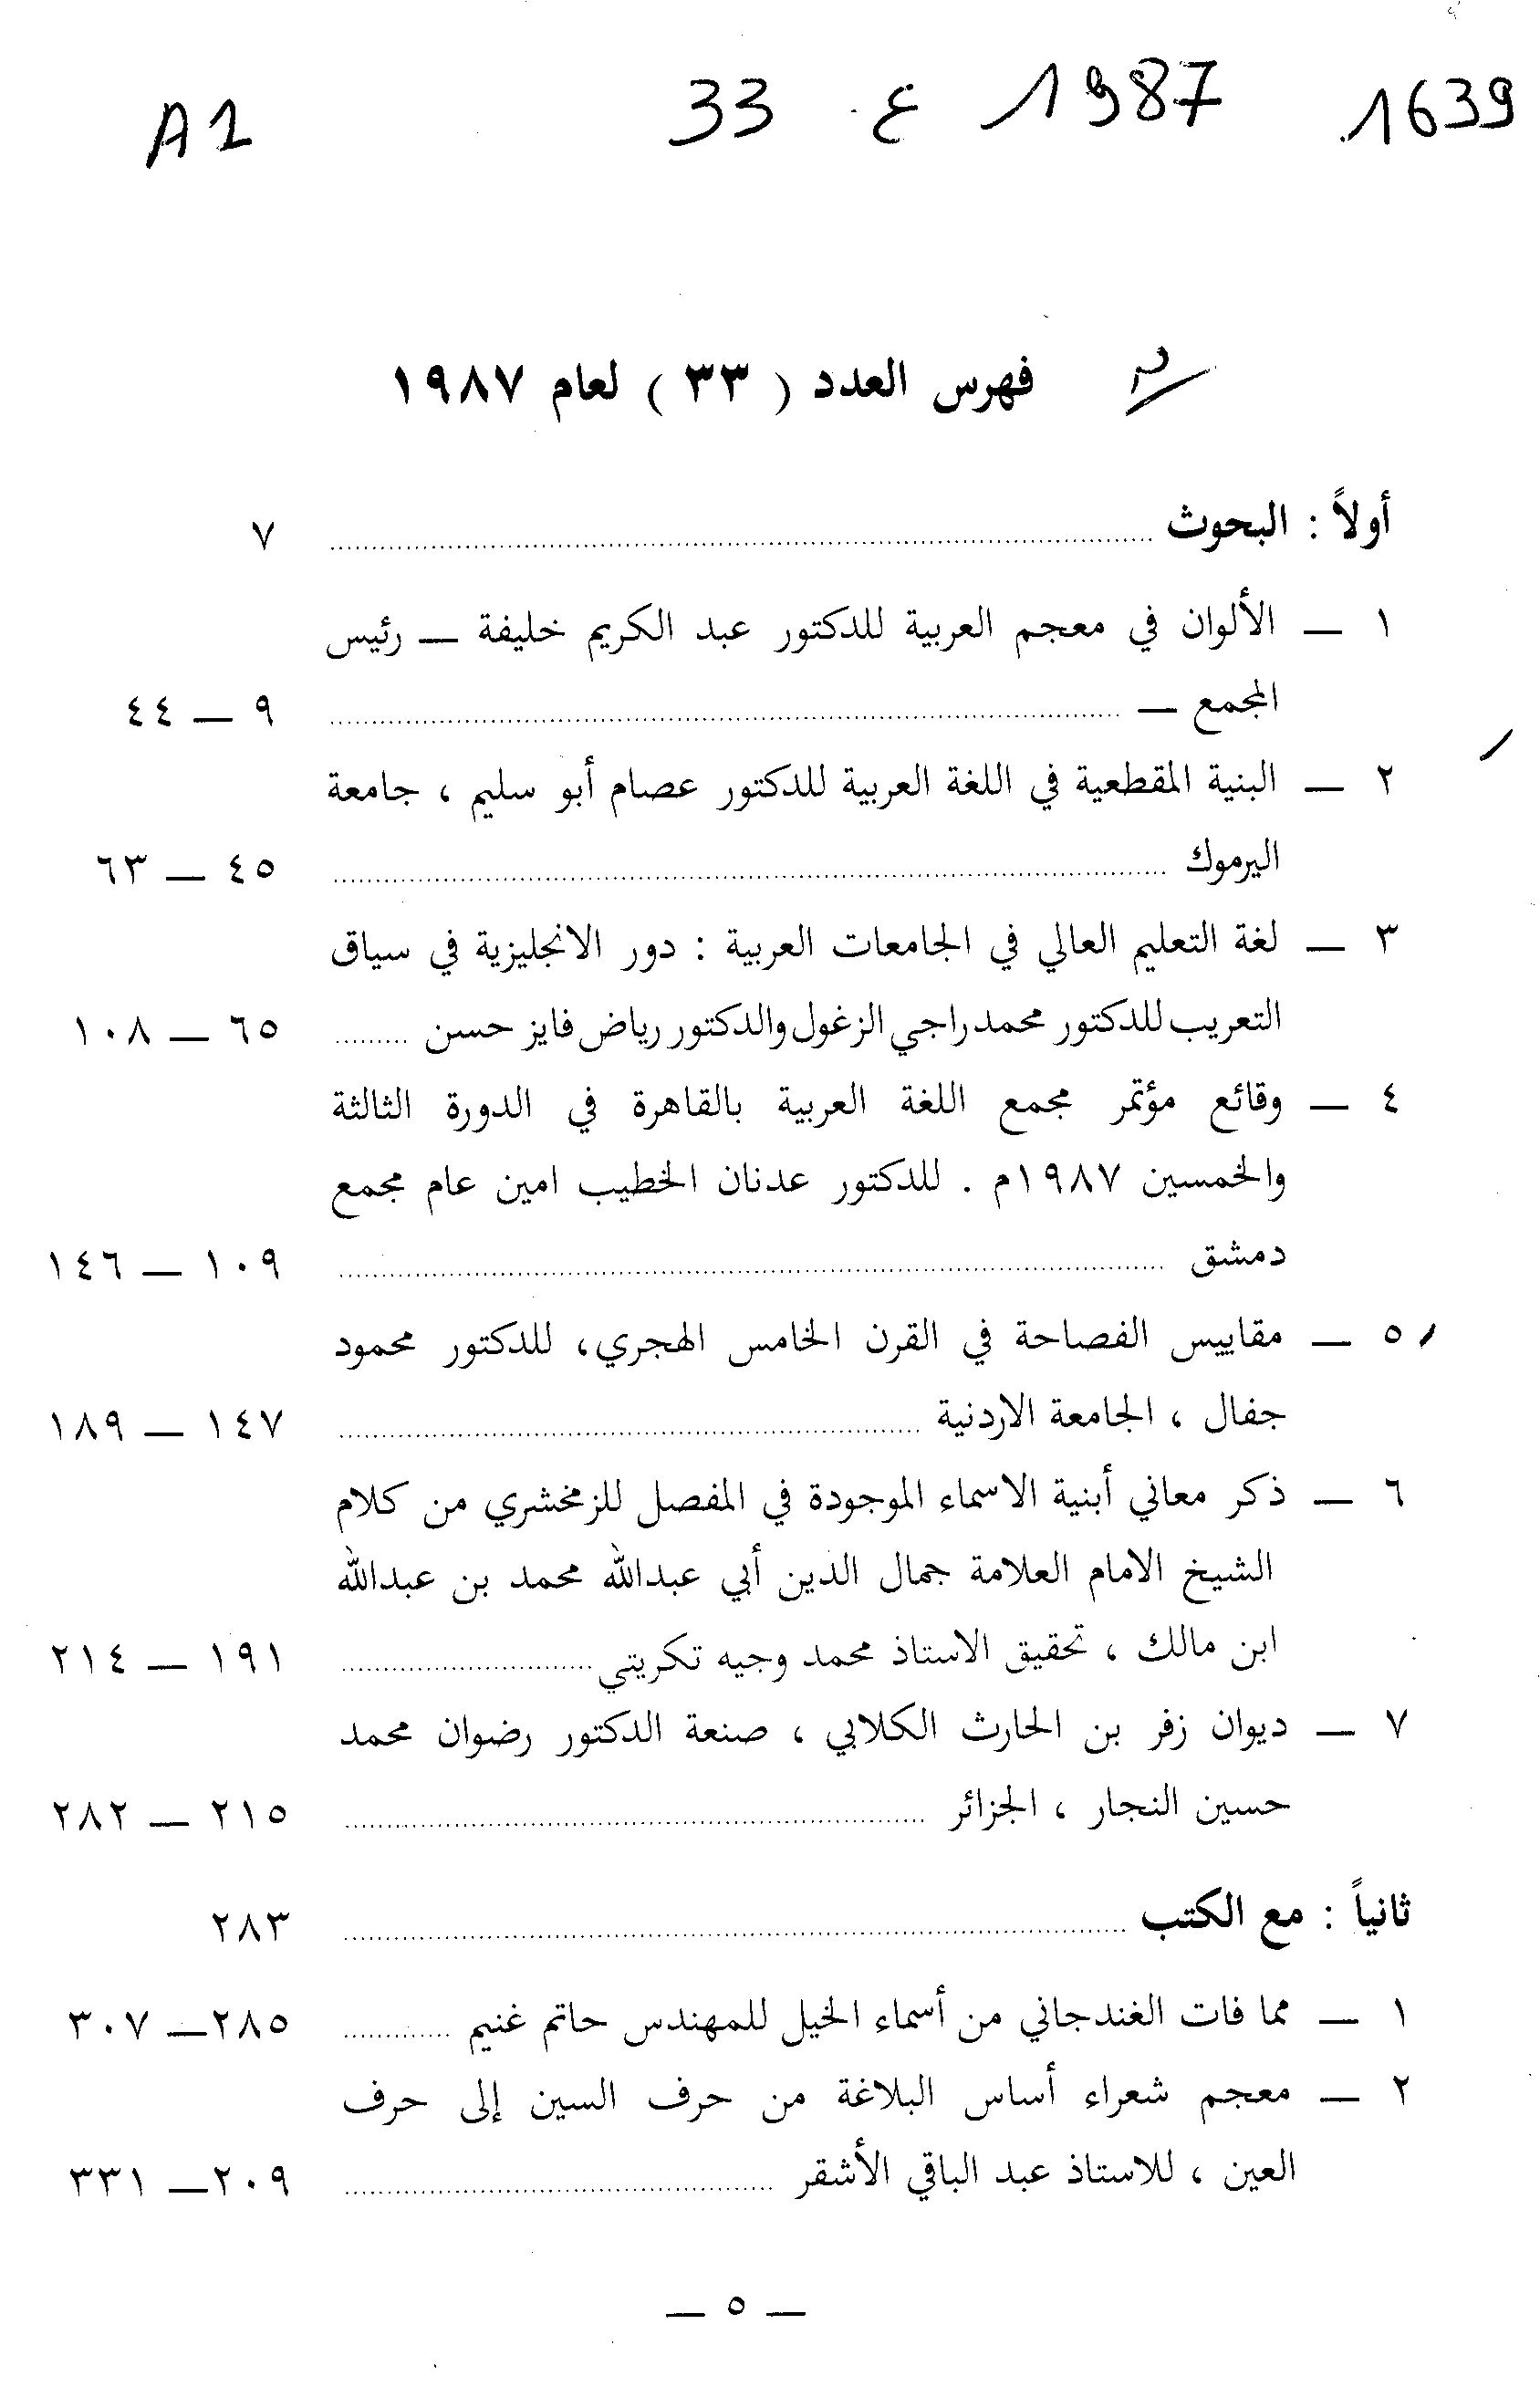 1639 1987 ع 33 A1
فهرس العدد ( ٣٣ ) لعام ١٩٨٧
أولاً : البحوث ........ ٧
١ — الألوان في معجم العربية للدكتور عبد الكريم خليفة — رئيس
المجمع — ........ ٩ — ٤٤
٢ — البنية المقطعية في اللغة العربية للدكتور عصام أبو سليم ، جامعة
اليرموك ........ ٤٥ — ٦٣
٣ — لغة التعليم العالي في الجامعات العربية : دور الانجليزية في سياق
التعريب للدكتور محمد راجي الزغول والدكتور رياض فايز حسن ........ ٦٥ — ١٠٨
٤ — وقائع مؤتمر مجمع اللغة العربية بالقاهرة في الدورة الثالثة
والخمسين ١٩٨٧م . للدكتور عدنان الخطيب امين عام مجمع
دمشق ........ ١٠٩ — ١٤٦
٥ — مقاييس الفصاحة في القرن الخامس الهجري، للدكتور محمود
جفال ، الجامعة الاردنية ........ ١٤٧ — ١٨٩
٦ — ذكر معاني أبنية الاسماء الموجودة في المفصل للزمخشري من كلام
الشيخ الامام العلامة جمال الدين أبي عبدالله محمد بن عبدالله
ابن مالك ، تحقيق الاستاذ محمد وجيه تكريتي ........ ١٩١ — ٢١٤
٧ — ديوان زفر بن الحارث الكلابي ، صنعة الدكتور رضوان محمد
حسين النجار ، الجزائر ........ ٢١٥ — ٢٨٢
ثانياً : مع الكتب ........ ٢٨٣
١ — مما فات الغندجاني من أسماء الخيل للمهندس حاتم غنيم ........ ٢٨٥— ٣٠٧
٢ — معجم شعراء أساس البلاغة من حرف السين إلى حرف
العين ، للاستاذ عبد الباقي الأشقر ........ ٢٠٩— ٣٣١
— ٥ —